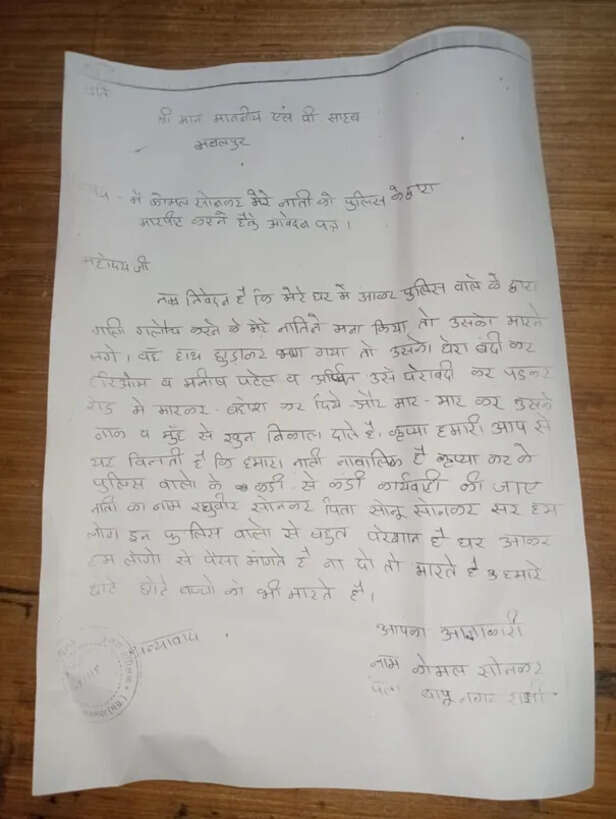 प्रति
श्री मान माननीय एस पी साहब
जबलपुर
विषय - मैं कोमल सोनकर मेरे नाती को पुलिस के द्वारा
मारपीट करने हेतु आवेदन पत्र।
महोदय जी
नम्र निवेदन है कि मेरे घर में आकर पुलिस वाले के द्वारा
गाली गलौच करने के मेरे नातिने मना किया तो उसको मारने
लगे। वह हाथ छुड़ाकर भाग गया तो उसको घेरा बंदी कर
व मनीष पटेल व अर्पित उसे घेराबंदी कर पकड़कर
रोड मे मारकर - बेहोश कर दिये और मार - मार कर उसके
नाक व मुँह से खून निकाल दाले है। कृप्या हमारी आप से
यह विनती है कि हमारा नाती नाबालिक है कृप्या कर के
पुलिस वालो के कड़ी से कड़ी कार्यवाही की जाए
नाती का नाम रघुवीर सोनकर पिता सोनू सोनकर सर हम
लोग इन पुलिस वालो से बहुत परेशान है घर आकर
हम लोगो से पैसा मांगते है ना दो तो मारते है व हमारे
छोटे छोटे बच्चो को भी मारते है।
आपका आज्ञाकारी
धन्यवाद
नाम कोमल सोनकर
पता बापू नगर रांझी